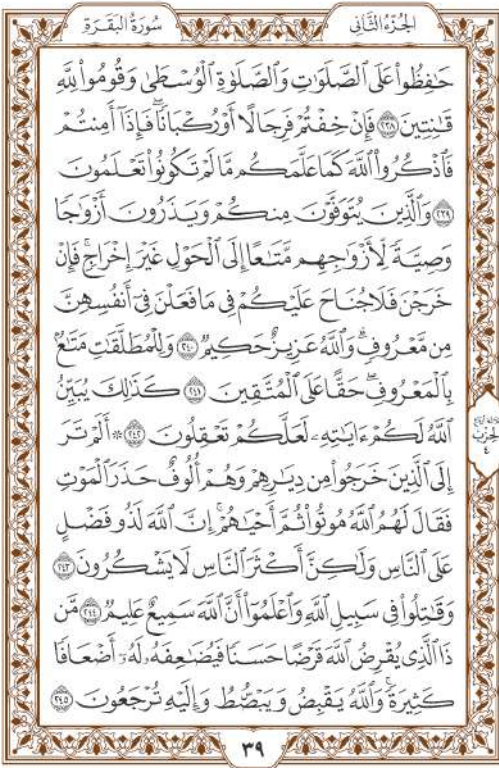 الجُزْءُ الثَّانِى سُورَةُ البَقَرَةِ
حَـٰفِظُوا۟ عَلَى ٱلصَّلَوَٰتِ وَٱلصَّلَوٰةِ ٱلْوُسْطَىٰ وَقُومُوا۟ لِلَّهِ
قَـٰنِتِينَ ٢٣٨ فَإِنْ خِفْتُمْ فَرِجَالًا أَوْ رُكْبَانًا ۖ فَإِذَآ أَمِنتُمْ
فَٱذْكُرُوا۟ ٱللَّهَ كَمَا عَلَّمَكُم مَّا لَمْ تَكُونُوا۟ تَعْلَمُونَ
٢٣٩ وَٱلَّذِينَ يُتَوَفَّوْنَ مِنكُمْ وَيَذَرُونَ أَزْوَٰجًا
وَصِيَّةً لِّأَزْوَٰجِهِم مَّتَـٰعًا إِلَى ٱلْحَوْلِ غَيْرَ إِخْرَاجٍ ۚ فَإِنْ
خَرَجْنَ فَلَا جُنَاحَ عَلَيْكُمْ فِى مَا فَعَلْنَ فِىٓ أَنفُسِهِنَّ
مِن مَّعْرُوفٍ ۗ وَٱللَّهُ عَزِيزٌ حَكِيمٌ ٢٤٠ وَلِلْمُطَلَّقَـٰتِ مَتَـٰعٌۢ
بِٱلْمَعْرُوفِ ۖ حَقًّا عَلَى ٱلْمُتَّقِينَ ٢٤١ كَذَٰلِكَ يُبَيِّنُ
ٱللَّهُ لَكُمْ ءَايَـٰتِهِۦ لَعَلَّكُمْ تَعْقِلُونَ ٢٤٢ ۞ أَلَمْ تَرَ
إِلَى ٱلَّذِينَ خَرَجُوا۟ مِن دِيَـٰرِهِمْ وَهُمْ أُلُوفٌ حَذَرَ ٱلْمَوْتِ
فَقَالَ لَهُمُ ٱللَّهُ مُوتُوا۟ ثُمَّ أَحْيَـٰهُمْ ۚ إِنَّ ٱللَّهَ لَذُو فَضْلٍ
عَلَى ٱلنَّاسِ وَلَـٰكِنَّ أَكْثَرَ ٱلنَّاسِ لَا يَشْكُرُونَ ٢٤٣
وَقَـٰتِلُوا۟ فِى سَبِيلِ ٱللَّهِ وَٱعْلَمُوٓا۟ أَنَّ ٱللَّهَ سَمِيعٌ عَلِيمٌ ٢٤٤ مَّن
ذَا ٱلَّذِى يُقْرِضُ ٱللَّهَ قَرْضًا حَسَنًا فَيُضَـٰعِفَهُۥ لَهُۥٓ أَضْعَافًا
كَثِيرَةً ۚ وَٱللَّهُ يَقْبِضُ وَيَبْصُۜطُ وَإِلَيْهِ تُرْجَعُونَ ٢٤٥
الحِزْبُ
٤
٣٩